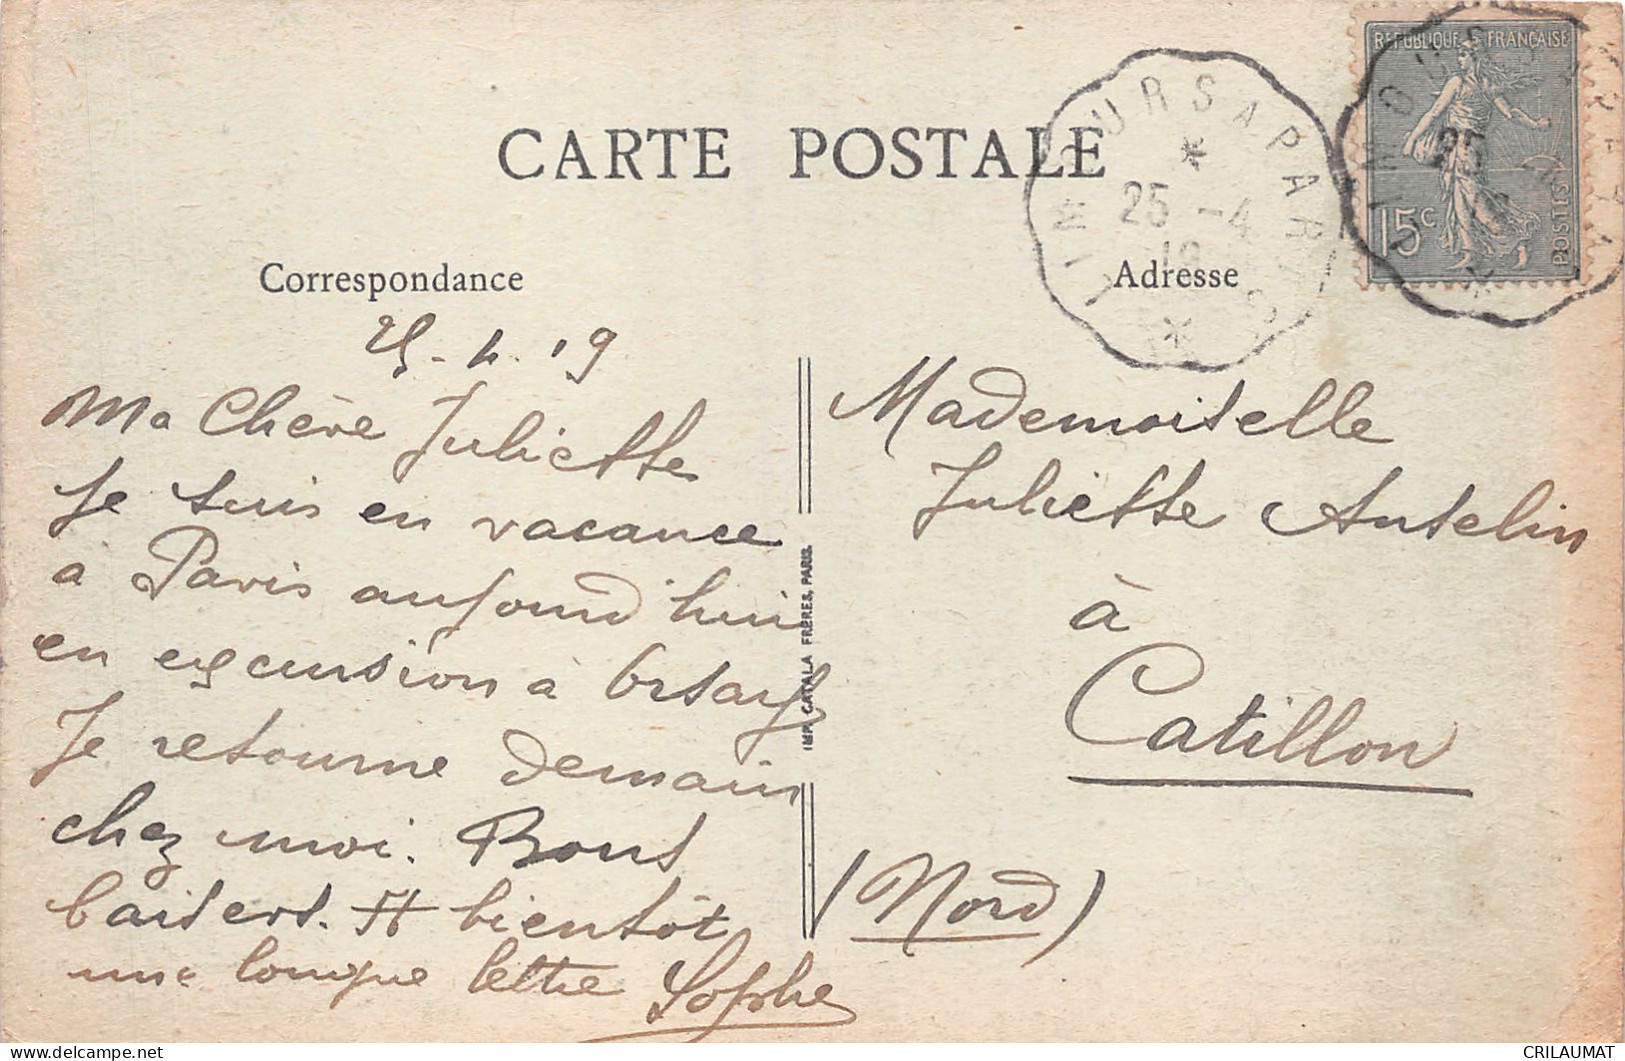 CARTE POSTALE
Correspondance
Adresse
RÉPUBLIQUE FRANÇAISE
15c
POSTES
LIMOURS A PARIS
25 -4
19
25
25-4-19
Ma Chère Juliette
Je suis en vacance
a Paris aujourd'hui
en excursion à Orsay
Je retourne demain
chez moi. Bons
baisers. A bientôt
une longue lettre Sophie
Mademoiselle
Juliette Antelin
à
Catillon
(Nord)
IMP. CATALA FRÈRES, PARIS.
CRILAUMAT